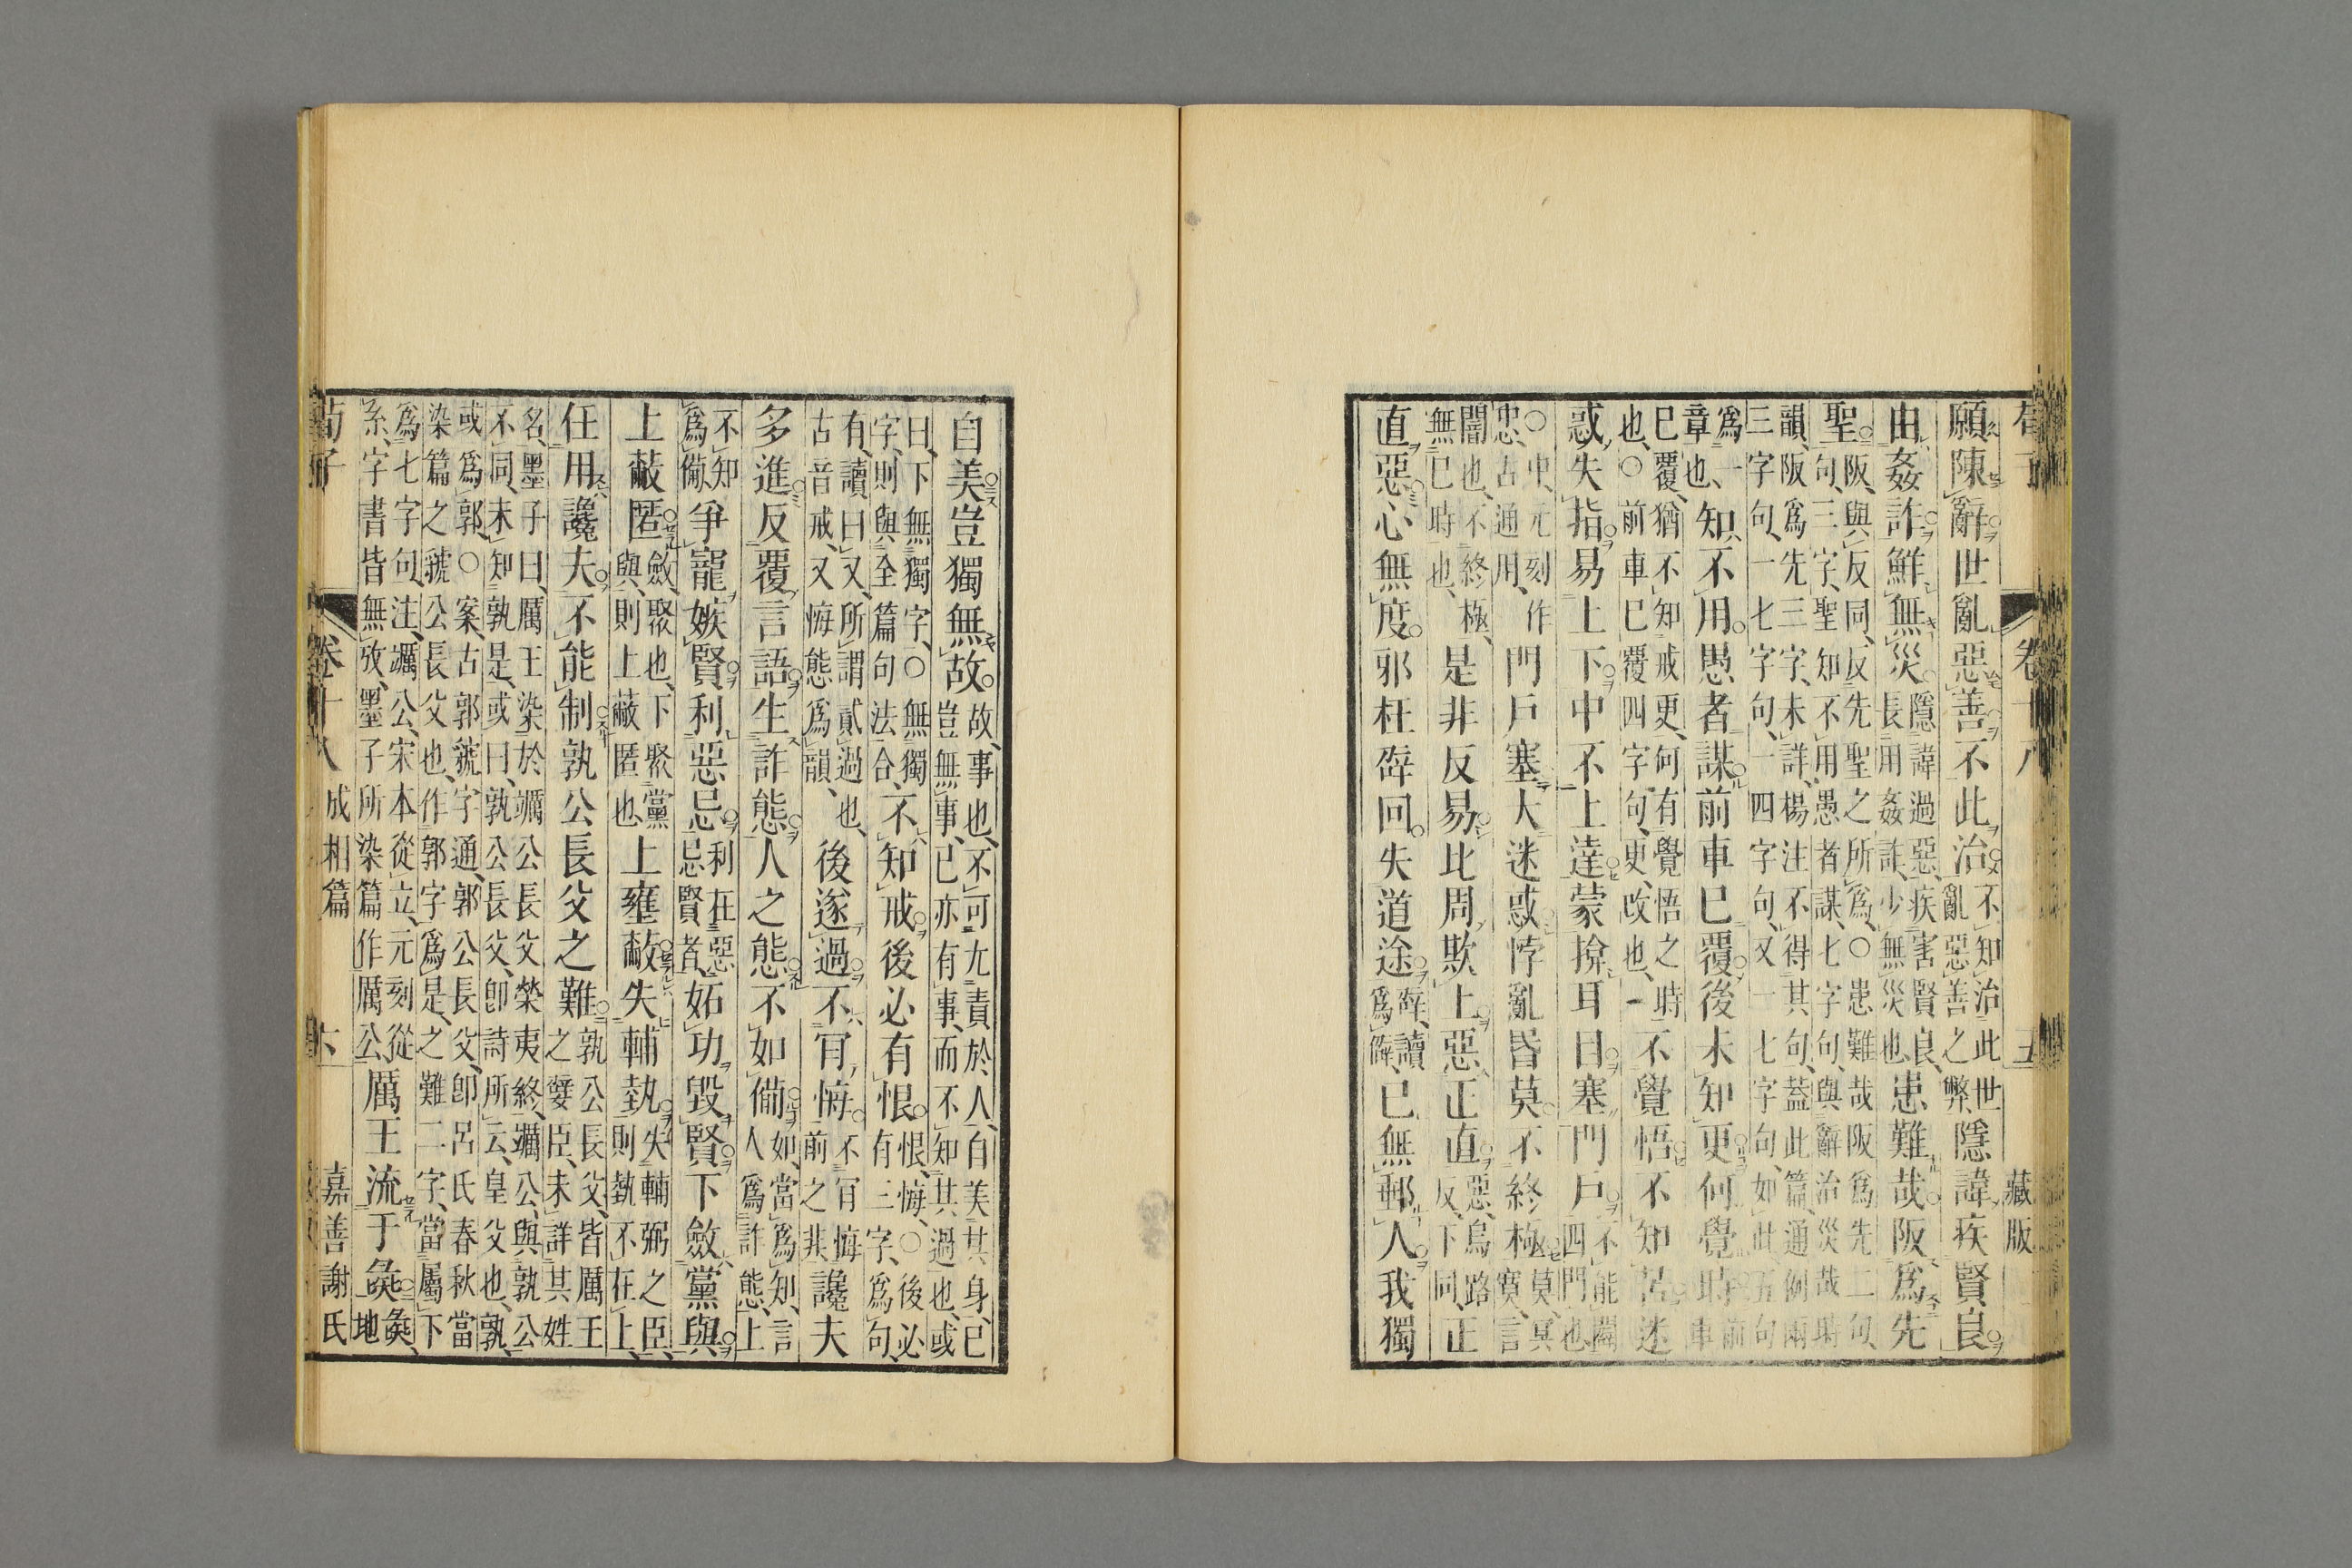 荀子　卷十八　五　藏版
願陳辭世亂惡善不此治不知治此世亂惡善之弊隱諱疾賢良
由姦詐鮮無災隱諱過惡疾害賢良長用姦詐少無災也患難哉阪爲先
聖阪與反同反先聖之所爲○患難哉阪爲先二句句三字聖知不用愚者謀七字句與辭治災哉時
韻阪爲先三字未詳楊注不得其句蓋此篇通例兩三字句一七字句一四字句又一七字句如此五句
爲一章也知不用愚者謀前車已覆後未知更何覺時前車
已覆猶不知戒更何有覺悟之時也○前車已覆四字句更改也一不覺悟不知苦迷
惑失指易上下中不上達蒙揜耳目塞門戶不能闢四門也
○中元刻作忠古通用門戶塞大迷惑悖亂昏莫不終極莫冥寞言
闇也不終極無已時也是非反易比周欺上惡正直惡烏路反下同正
直惡心無度邪枉辟回失道途辟讀爲僻已無郵人我獨
自美豈獨無故故事也不可尤責於人自美其身已豈無事已亦有事而不知其過也或
曰下無獨字○無獨字則與全篇句法合不知戒後必有恨恨悔○後必有三字爲句
有讀曰又所謂貳過也古音戒又悔態爲韻後遂過不肯悔不肯悔前之非讒夫
多進反覆言語生詐態人之態不如備如當爲知言人爲詐態上
不知爲備爭寵嫉賢利惡忌利在惡忌賢者妬功毀賢下斂黨與
上蔽匿斂聚也下聚黨與則上蔽匿也上壅蔽失輔埶失輔弼之臣則埶不在上
任用讒夫不能制孰公長父之難孰公長父皆厲王之嬖臣未詳其姓
名墨子曰厲王染於蠣公長父榮夷終蠣公與孰公不同未知孰是或曰孰公長父即詩所云皇父也孰
或爲郭○案古郭虢字通郭公長父即呂氏春秋當染篇之虢公長父也作郭字爲是之難二字當屬下
爲七字句注蠣公宋本從立元刻從糸字書皆無攷墨子所染篇作厲公厲王流于彘彘地
荀子　卷十八　成相篇　六　嘉善謝氏